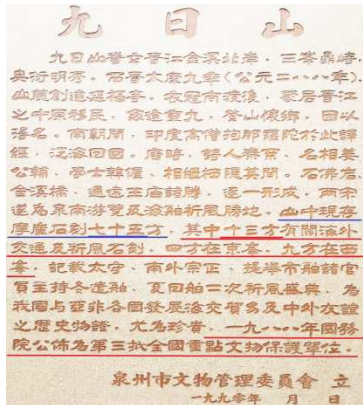 九日山
九日山脊在晋江金溪北岸，三峯鼎峙，
奥衍明秀。西晋太康九年（公元二八八年）
山麓創造延福寺。衣冠南渡後，聚居晋江
之中原移民，每逢重九，登山懷鄉，因以
得名。南朝間，印度高僧拘那羅陀於此譯
經，泛海回國。唐時，詩人秦系，名相姜
公輔，學士韓偓，相繼栖隱其間。石佛岩、
金溪橋、通遠王廟諸勝，逐一形成，兩宋
遂爲泉南游覽及海舶祈風勝地。山中現存
摩崖石刻七十五方，其中十三方有關海外
交通及祈風石刻，四方在東峯，九方在西
峯，記載太守、南外宗正、提舉市舶諸官
員主持冬遣舶、夏回舶二次祈風盛典，爲
我國與亞非各國發展海交貿易及中外友誼
之歷史物證，尤爲珍貴。一九八八年國務
院公佈爲第三批全國重點文物保護單位。
泉州市文物管理委員會 立
一九九零年 月 日